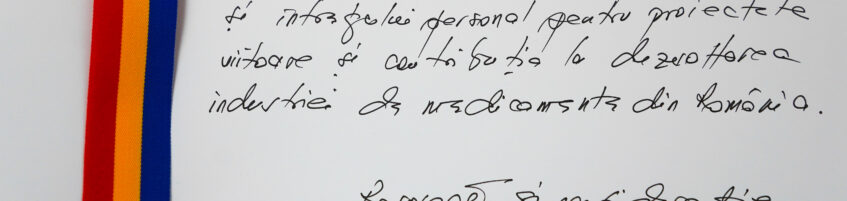 și întregului personal pentru proiectele
viitoare și contribuția la dezvoltarea
industriei de medicamente din România.
și